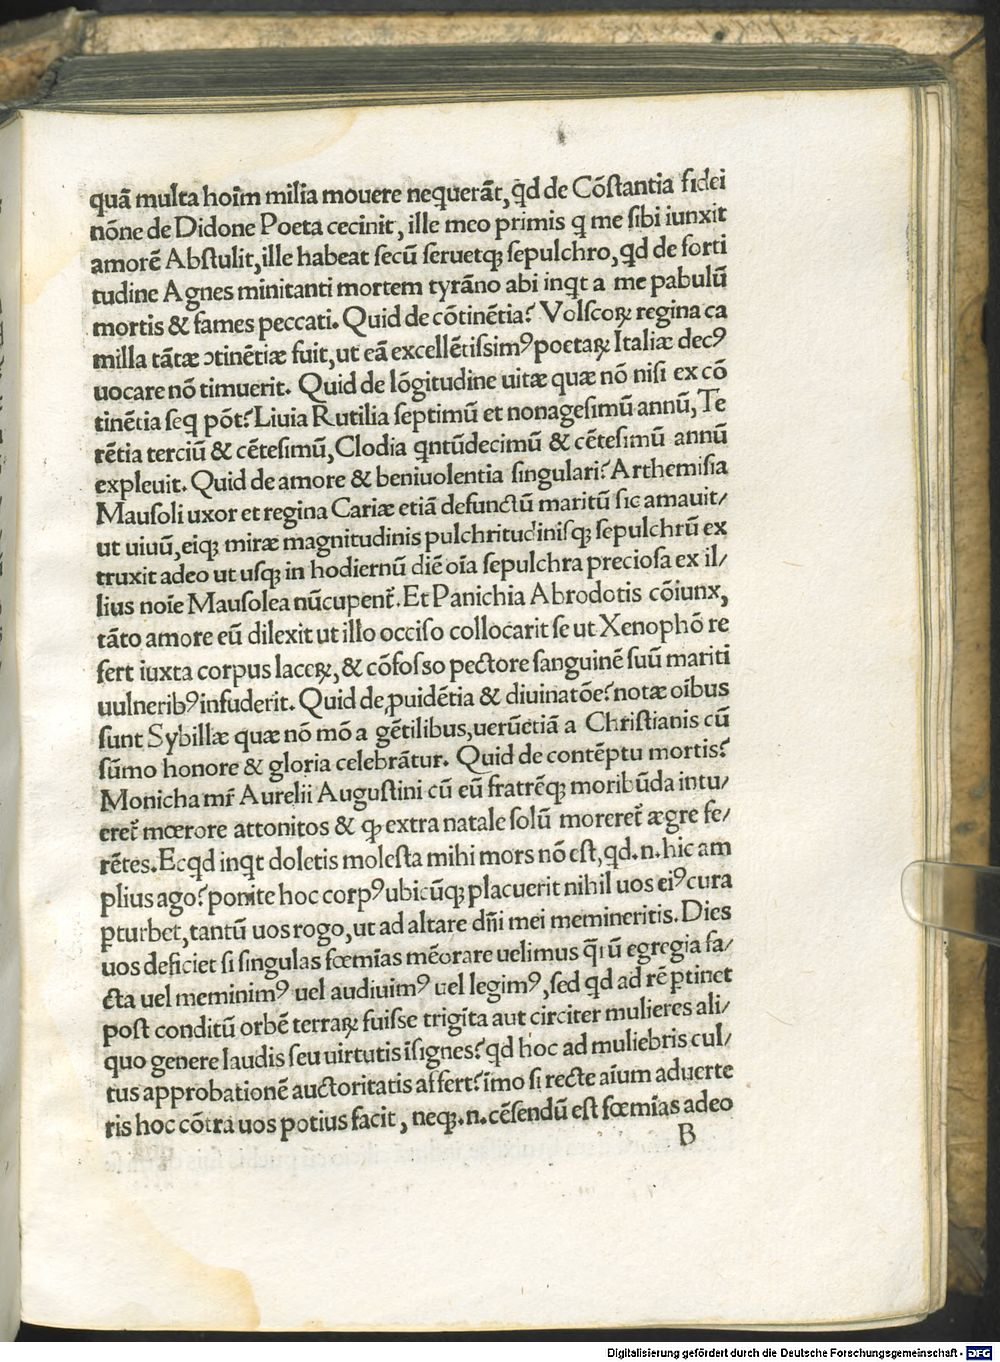 quã multa hoĩm milia mouere nequerãt, qd̃ de Cõſtantia fidei
nõne de Didone Poeta cecinit, ille meo primis q me ſibi iunxit
amorẽ Abſtulit, ille habeat ſecũ ſeruetqꝫ ſepulchro, qd̃ de forti
tudine Agnes minitanti mortem tyrãno abi inqt a me pabulũ
mortis & fames peccati. Quid de cõtinẽtia? Volſcoꝝ regina ca
milla tãtæ ↄtinẽtiæ fuit, ut eã excellẽtiſſimꝰ poetaꝝ Italiæ decꝰ
uocare nõ timuerit. Quid de lõgitudine uitæ quæ nõ niſi ex cõ
tinẽtia ſeq põt? Liuia Rutilia ſeptimũ et nonageſimũ annũ, Te
rẽtia terciũ & cẽteſimũ, Clodia qntũdecimũ & cẽteſimũ annũ
expleuit. Quid de amore & beniuolentia ſingulari? Arthemiſia
Mauſoli uxor et regina Cariæ etiã defunctũ maritũ ſic amauit/
ut uiuũ, eiqꝫ miræ magnitudinis pulchritudiniſqꝫ ſepulchrũ ex
truxit adeo ut uſqꝫ in hodiernũ diẽ oĩa ſepulchra precioſa ex il/
lius noĩe Mauſolea nũcupent̃. Et Panichia Abrodotis cõiunx,
tãto amore eũ dilexit ut illo occiſo collocarit ſe ut Xenophõ re
fert iuxta corpus laceꝝ, & cõfoſſo pectore ſanguinẽ ſuũ mariti
uulneribꝰ infuderit. Quid de ꝓuidẽtia & diuinatõe? notæ oĩbus
ſunt Sybillæ quæ nõ mõ a gẽtilibus, uerũetiã a Chriſtianis cũ
ſũmo honore & gloria celebrãtur. Quid de contẽptu mortis?
Monicha mr̃ Aurelii Auguſtini cũ eũ fratrẽqꝫ moribũda intu/
eret̃ mœrore attonitos & ꝙ extra natale ſolũ moreret̃ ægre fe/
rẽtes. Ecqd inqt doletis moleſta mihi mors nõ eſt, qd.n. hic am
plius ago? ponite hoc corpꝰ ubicũqꝫ placuerit nihil uos eiꝰ cura
ꝑturbet, tantũ uos rogo, ut ad altare dñi mei memineritis. Dies
uos deficiet ſi ſingulas fœmĩas mẽorare uelimus q̃ꝝ egregia fa/
cta uel meminimꝰ uel audiuimꝰ uel legimꝰ, ſed qd ad rẽ ꝑtinet
poſt conditũ orbẽ terraꝝ fuiſse trigĩta aut circiter mulieres ali/
quo genere laudis ſeu uirtutis ĩſignes? qd hoc ad muliebris cul/
tus approbationẽ auctoritatis affert? ĩmo ſi recte aĩum aduerte
ris hoc cõtra uos potius facit, neqꝫ.n. cẽſendũ eſt fœmĩas adeo
B
Digitalisierung gefördert durch die Deutsche Forschungsgemeinschaft - DFG